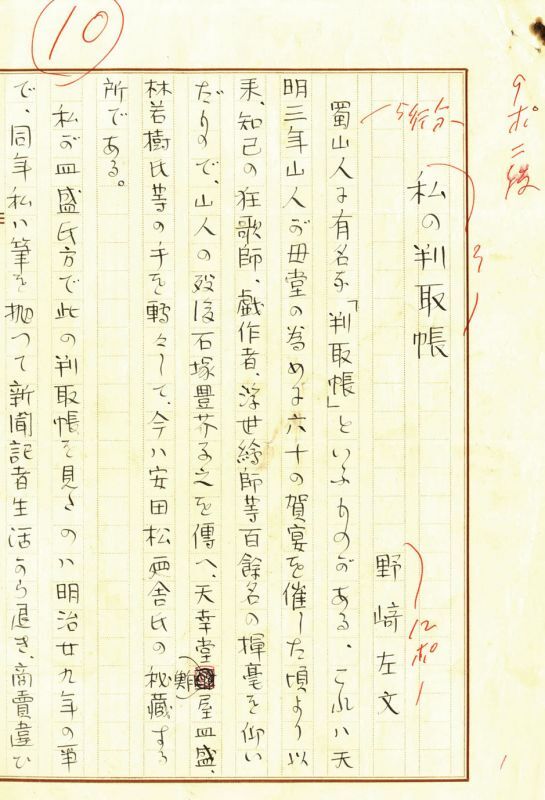 10
9ポ二段
5行分
私の判取帳
野﨑左文
12ポ
蜀山人に有名な「判取帳」といふものがある、これハ天
明三年山人が母堂の為めに六十の賀宴を催した頃より以
来、知己の狂歌師、戯作者、浮世繪師等百餘名の揮毫を仰い
だもので、山人の歿後石塚豊芥子之を傳へ、天幸堂屋皿盛、
林若樹氏等の手を轉々して、今ハ安田松廼舎氏の秘藏する
所である。
私が皿盛氏方で此の判取帳を見たのハ明治廿九年の事
で、同年私ハ筆を抛つて新聞記者生活から退き、商賣違ひ